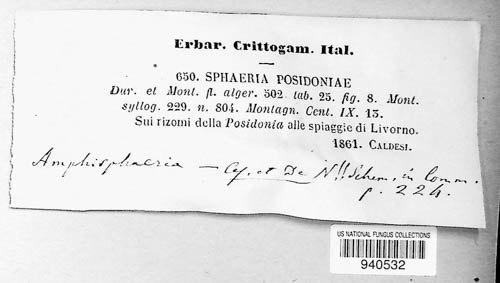 Erbar. Crittogam. Ital.
650. SPHAERIA POSIDONIAE
Dur. et Mont. fl. alger. 502 tab. 25. fig. 8. Mont.
syllog. 229. n. 804. Montagn. Cent. IX. 13.
Sui rizomi della Posidonia alle spiaggie di Livorno.
1861. CALDESI.
Amphisphaeria — Ces. et De N!! Schem. in Comm.
p. 224.
US NATIONAL FUNGUS COLLECTIONS
940532